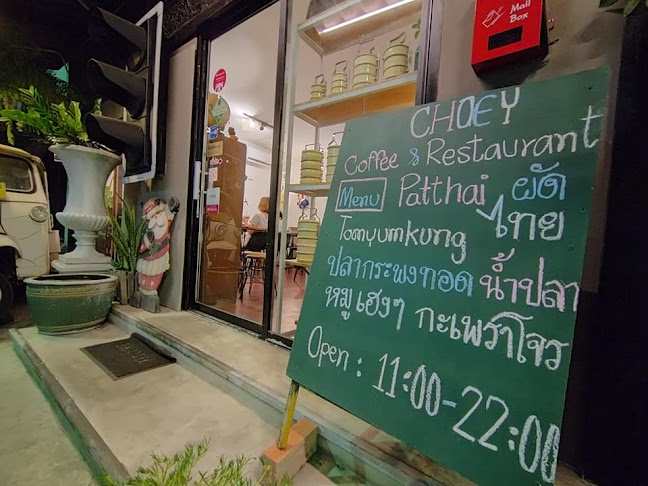 Mail
Box
CHOEY
Coffee & Restaurant
Menu Patthai ผัด
Tomyumkung ไทย
ปลากระพงทอด น้ำปลา
หมูเฮงๆ กะเพราโจร
Open : 11:00-22:00